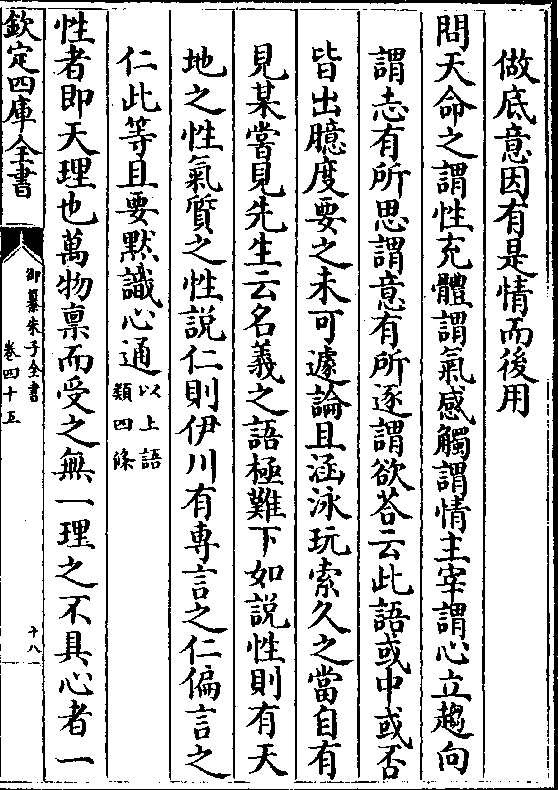 做底意因有是情而後用
問天命之謂性充體謂氣感觸謂情主宰謂心立趨向
謂志有所思謂意有所逐謂欲荅云此語或中或否
皆出臆度要之未可遽論且涵泳玩索久之當自有
見某嘗見先生云名義之語極難下如説性則有天
地之性氣質之性説仁則伊川有専言之仁偏言之
仁此等且要黙識心通以上語類四條
性者即天理也萬物禀而受之無一理之不具心者一
欽定四庫全書
御纂朱子全書
卷四十五
十八